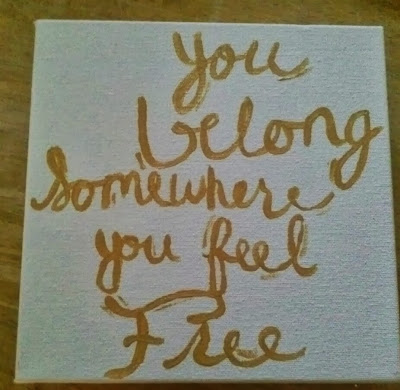 you
belong
somewhere
you feel
Free